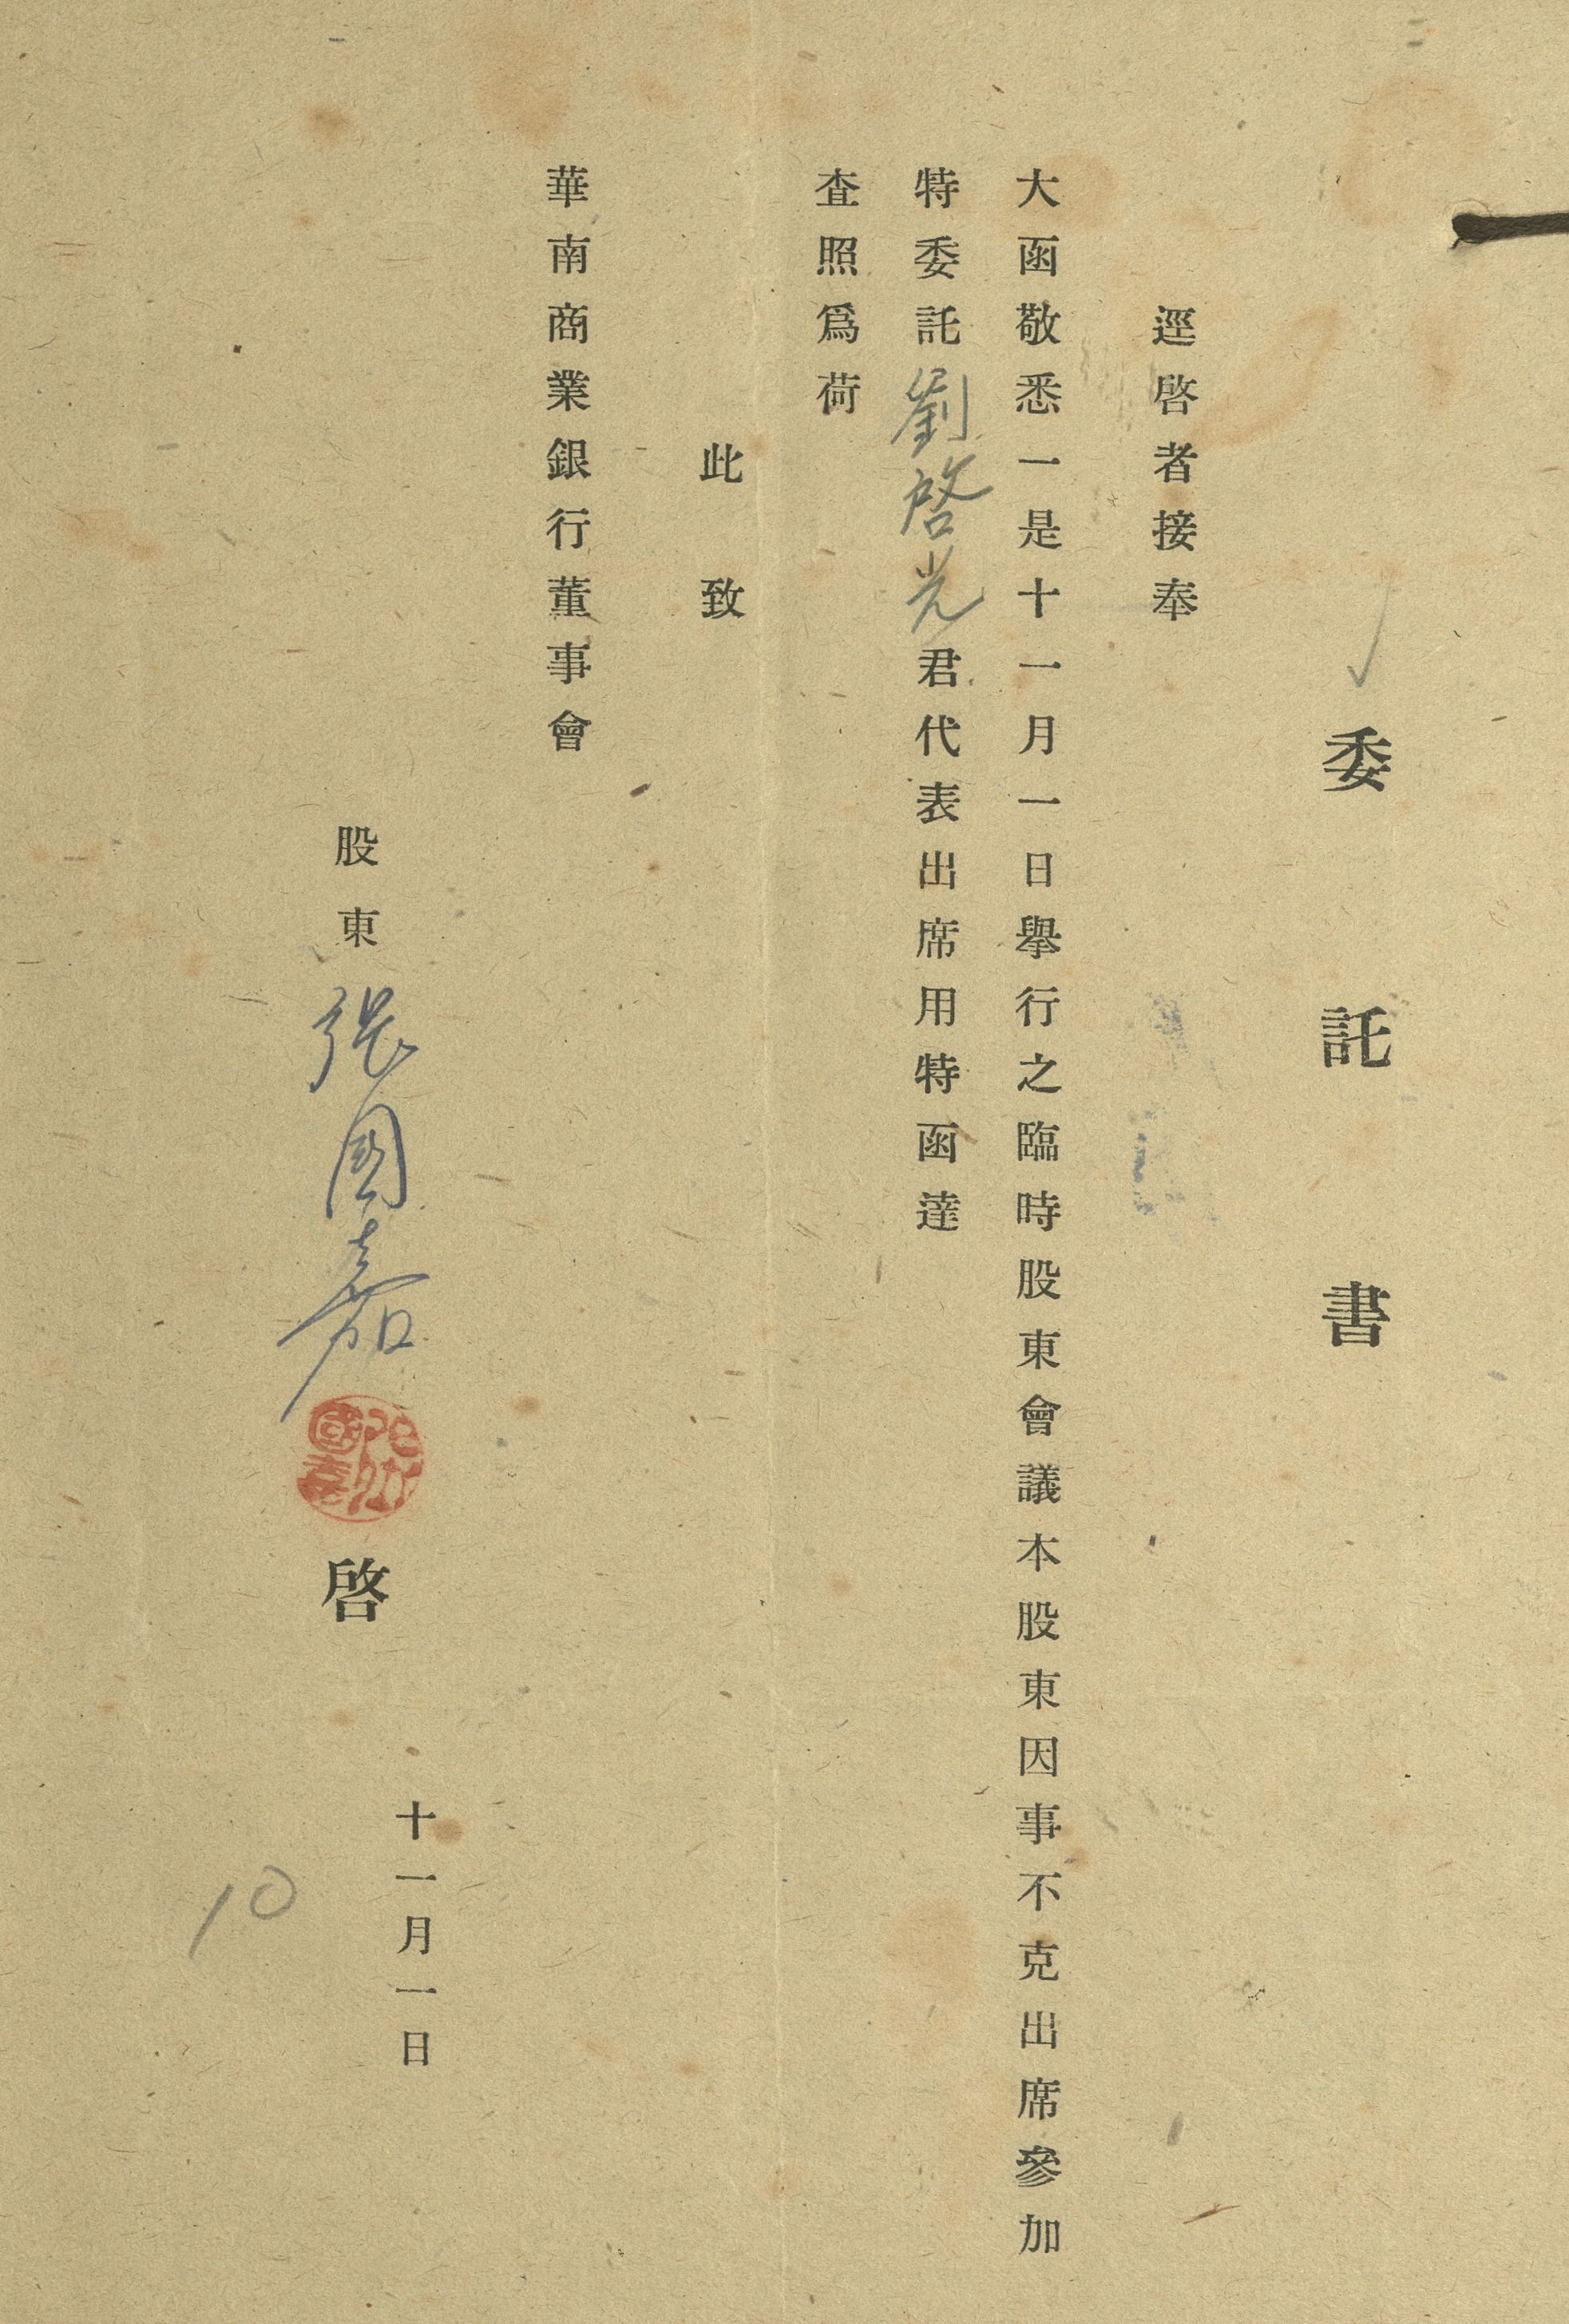 委託書
逕啓者接奉
大函敬悉一是十一月一日擧行之臨時股東會議本股東因事不克出席參加
特委託劉啓光君代表出席用特函達
査照爲荷
此致
華南商業銀行董事會
股東張國嘉啓
十一月一日
10